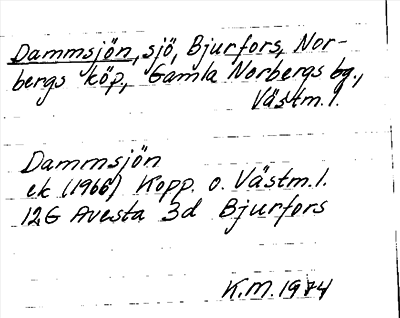 Dammsjön, sjö, Bjurfors, Nor-
bergs köp, Gamla Norbergs bg.,
Västm. l.
Dammsjön
ek (1966) Kopp. o. Västm. l.
12G Avesta 3d Bjurfors
K.M. 1974